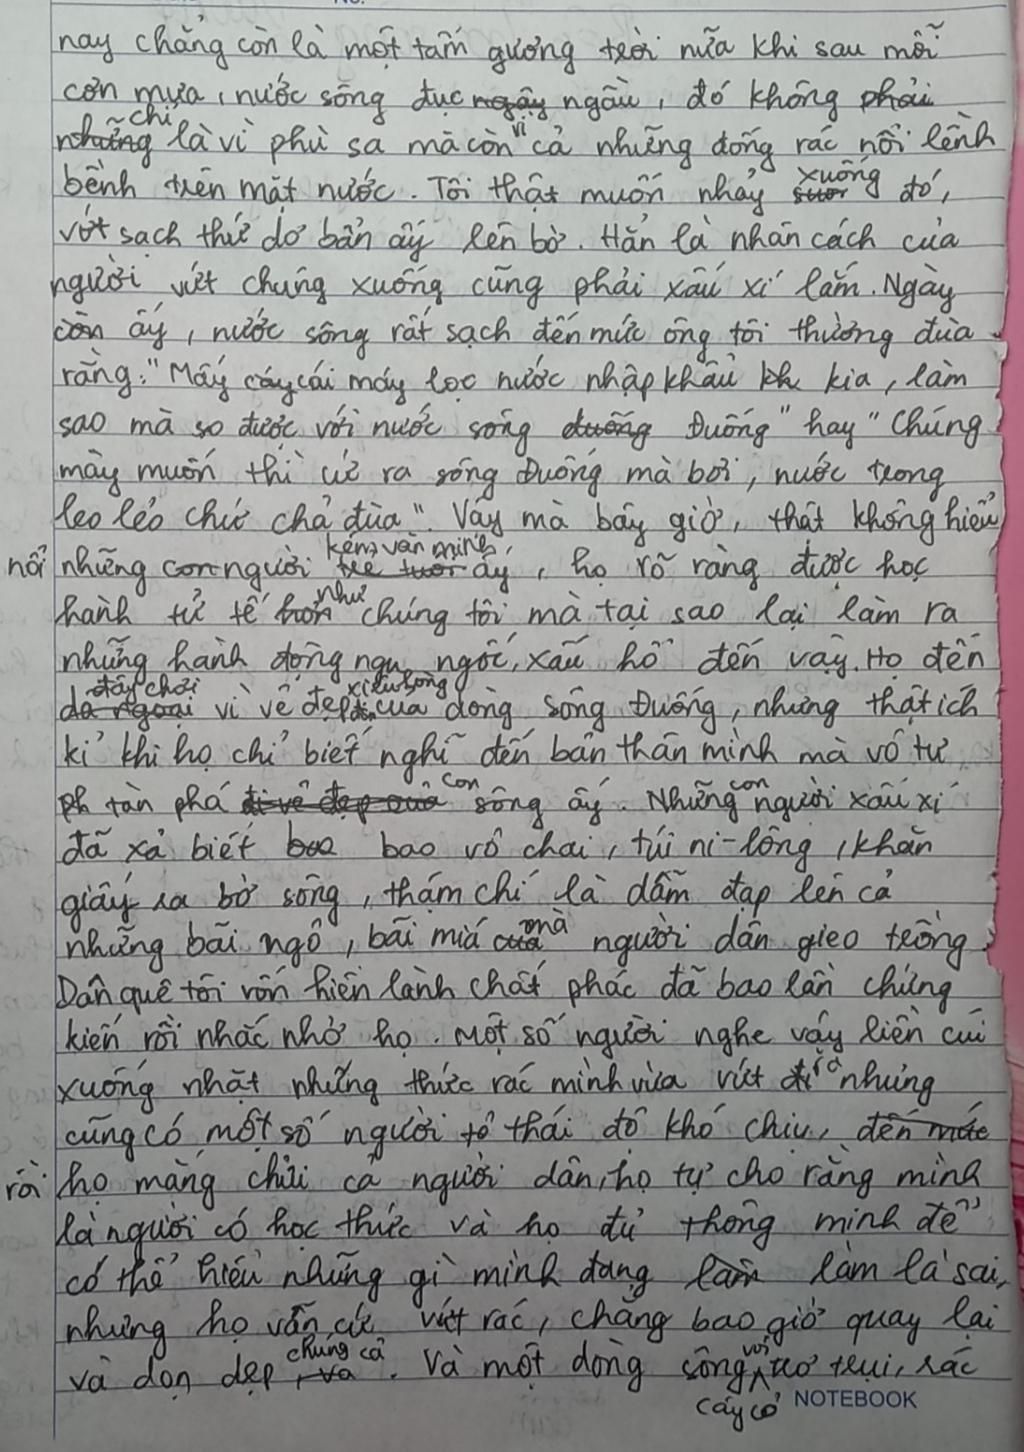 nay chẳng còn là một tấm gương trời nữa khi sau mỗi
cơn mưa, nước sông đục ngầu, đó không phải
chỉ là vì phù sa mà còn vì cả những đống rác nổi lềnh
bềnh trên mặt nước. Tôi thật muốn nhảy xuống đó,
vớt sạch thứ dơ bẩn ấy lên bờ. Hẳn là nhân cách của
người vứt chúng xuống cũng phải xấu xí lắm. Ngày
còn ấy, nước sông rất sạch đến mức ông tôi thường đùa
rằng: "Mấy cái máy lọc nước nhập khẩu kia, làm
sao mà so được với nước sông Đuống" hay "Chúng
mày muốn thì cứ ra sông Đuống mà bơi, nước trong
leo lẻo chứ chả đùa". Vậy mà bây giờ, thật không hiểu
nổi những người kém văn minh ấy, họ rõ ràng được học
hành tử tế như chúng tôi mà tại sao lại làm ra
những hành động ngu ngốc, xấu hổ đến vậy. Họ đến
đây chơi vì vẻ đẹp của dòng sông Đuống, nhưng thật ích
kỉ khi họ chỉ biết nghĩ đến bản thân mình mà vô tư
tàn phá con sông ấy. Những con người xấu xí
đã xả biết bao vỏ chai, túi ni-lông, khăn
giấy ra bờ sông, thậm chí là dẫm đạp lên cả
những bãi ngô, bãi mía mà người dân gieo trồng.
Dân quê tôi vốn hiền lành chất phác đã bao lần chứng
kiến rồi nhắc nhở họ. Một số người nghe vậy liền cúi
xuống nhặt những thức rác mình vừa vứt ra nhưng
cũng có một số người tỏ thái độ khó chịu,
rồi họ mắng chửi cả người dân, họ tự cho rằng mình
là người có học thức và họ đủ thông minh để
có thể hiểu những gì mình đang làm là sai,
nhưng họ vẫn cứ vứt rác, chẳng bao giờ quay lại
và dọn dẹp chúng cả. Và một dòng sông với cây cỏ trơ trụi, rác
NOTEBOOK